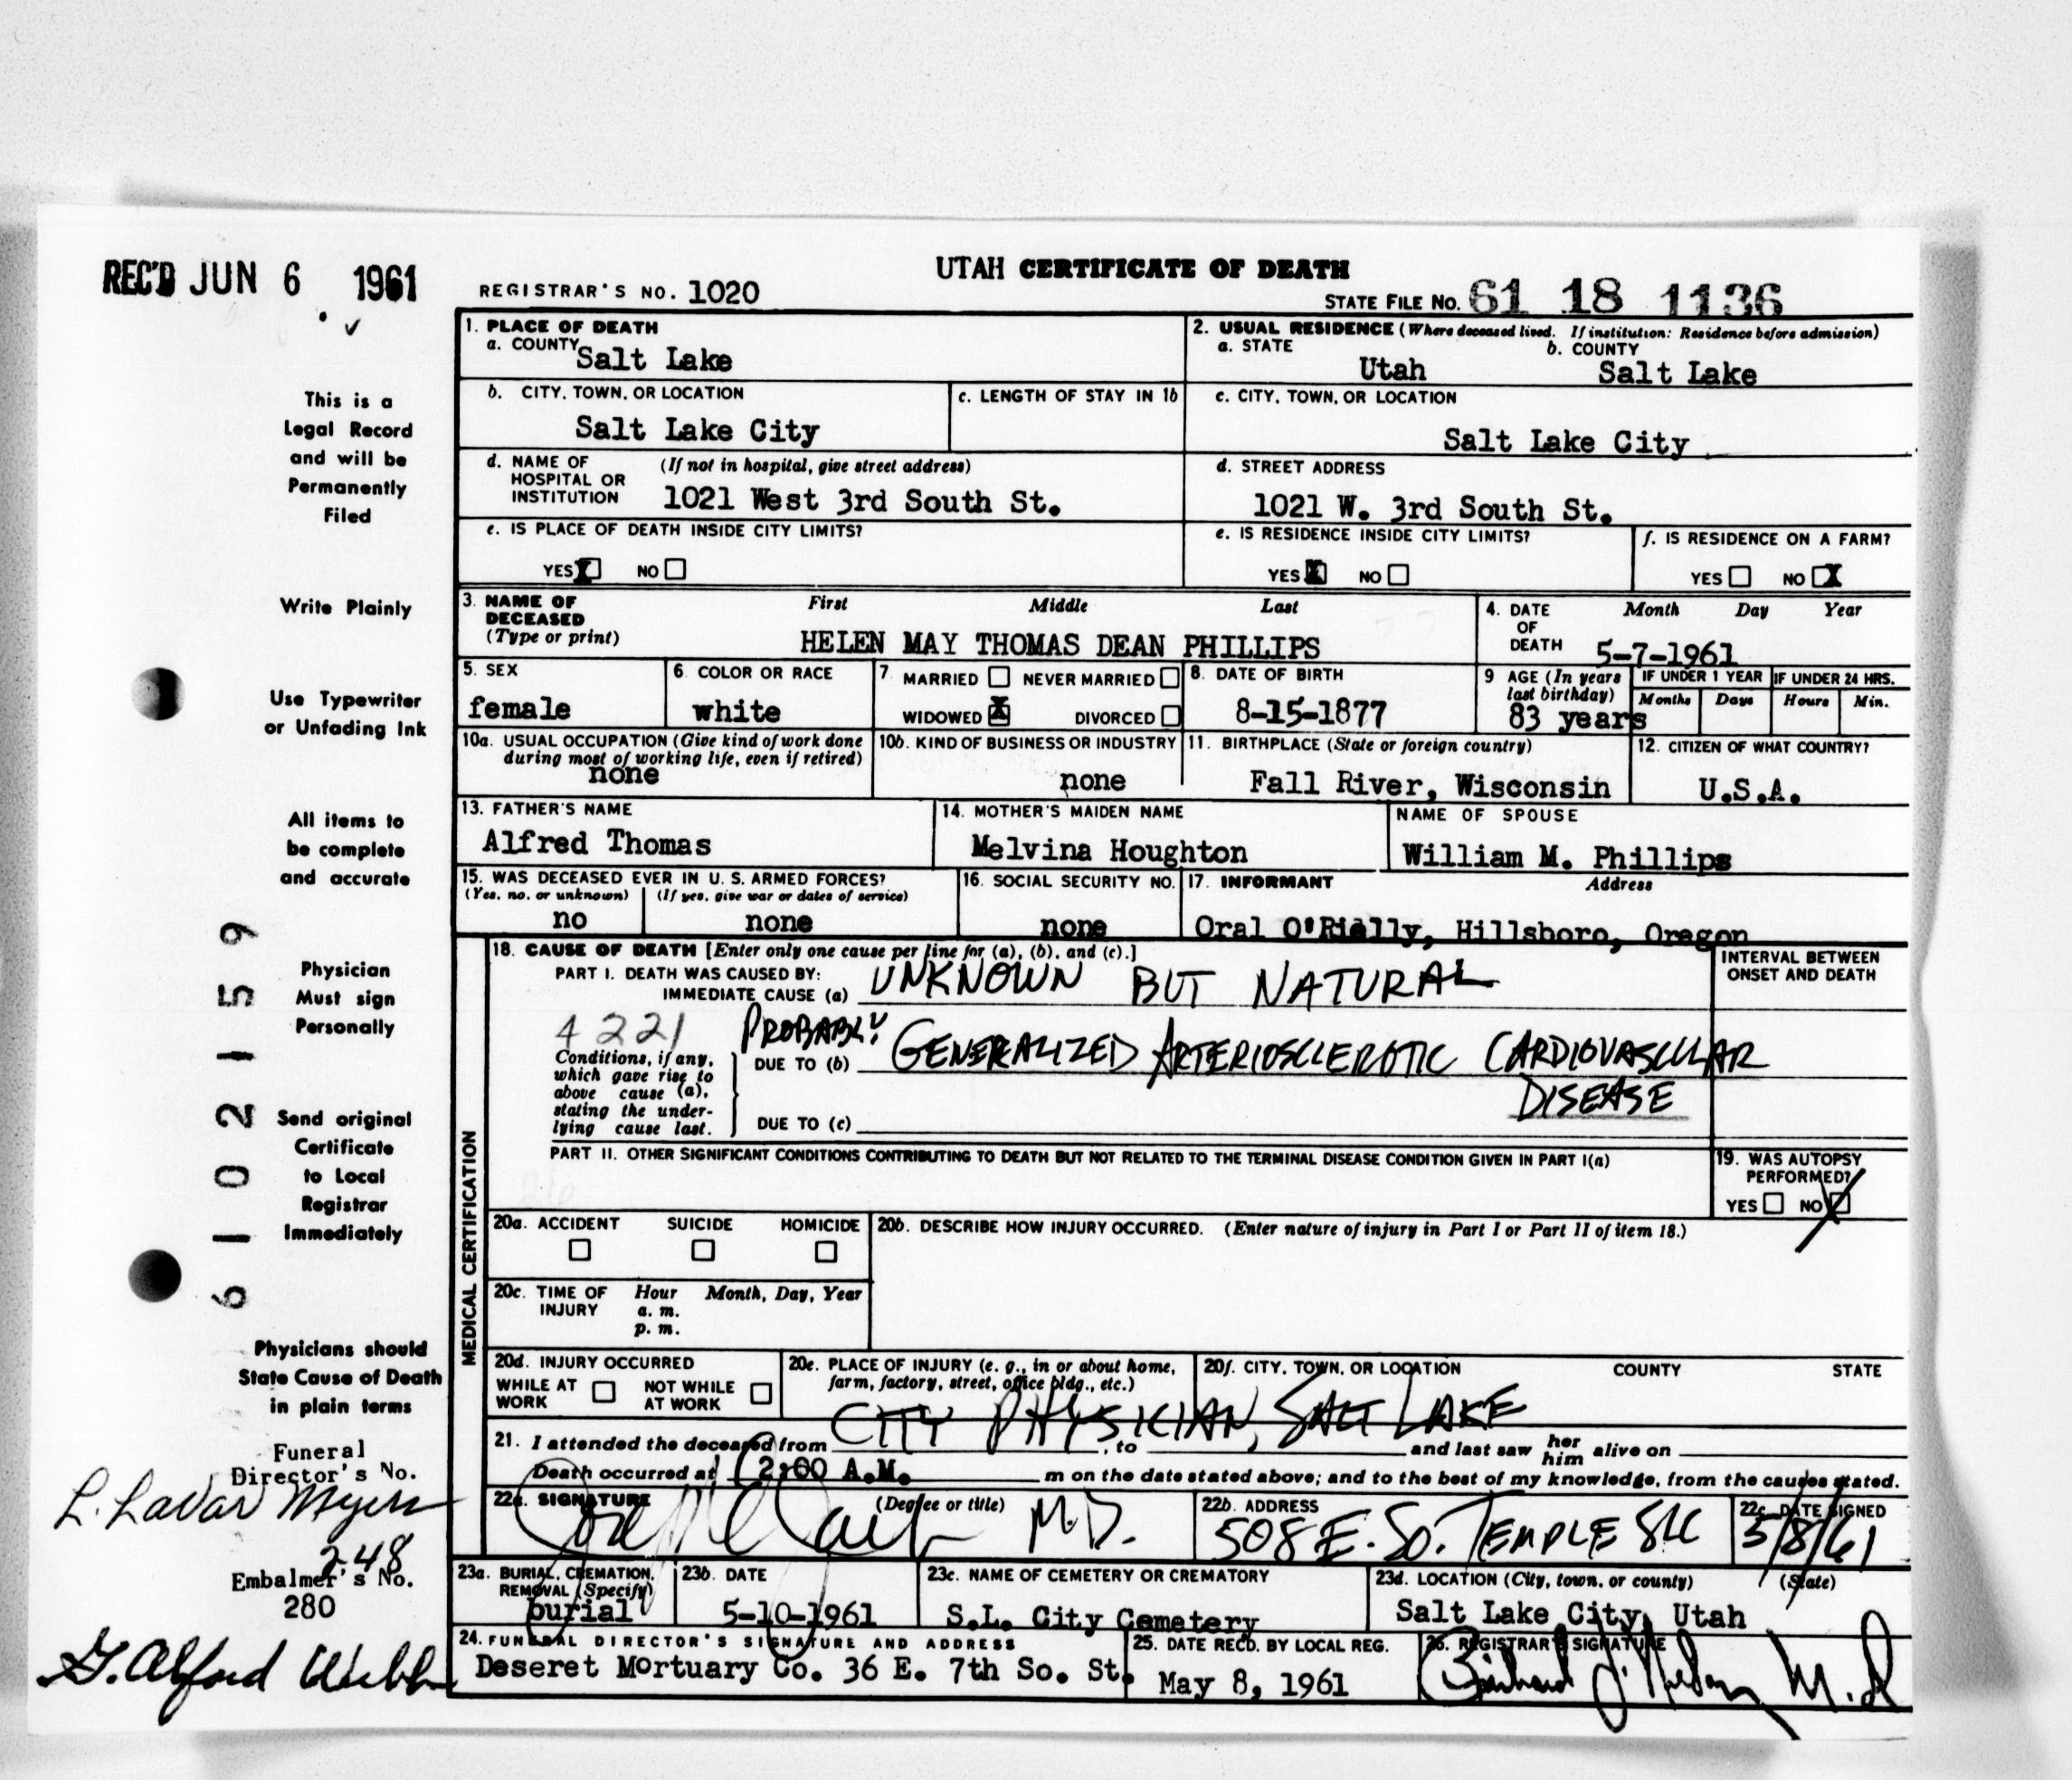 REC'D JUN 6 1961
UTAH CERTIFICATE OF DEATH
REGISTRAR'S NO. 1020
STATE FILE NO. 61 18 1136
1. PLACE OF DEATH
a. COUNTY Salt Lake
2. USUAL RESIDENCE (Where deceased lived. If institution: Residence before admission)
a. STATE Utah b. COUNTY Salt Lake
b. CITY, TOWN, OR LOCATION Salt Lake City
c. LENGTH OF STAY IN 1b
c. CITY, TOWN, OR LOCATION Salt Lake City
d. NAME OF HOSPITAL OR INSTITUTION (If not in hospital, give street address) 1021 West 3rd South St.
d. STREET ADDRESS 1021 W. 3rd South St.
e. IS PLACE OF DEATH INSIDE CITY LIMITS?
YES X NO
e. IS RESIDENCE INSIDE CITY LIMITS?
YES X NO
f. IS RESIDENCE ON A FARM?
YES NO X
3. NAME OF DECEASED (Type or print) First Middle Last
HELEN MAY THOMAS DEAN PHILLIPS
4. DATE OF DEATH Month Day Year
5-7-1961
5. SEX female
6. COLOR OR RACE white
7. MARRIED NEVER MARRIED
WIDOWED X DIVORCED
8. DATE OF BIRTH 8-15-1877
9 AGE (In years last birthday) 83 years
IF UNDER 1 YEAR Months Days
IF UNDER 24 HRS. Hours Min.
10a. USUAL OCCUPATION (Give kind of work done during most of working life, even if retired) none
10b. KIND OF BUSINESS OR INDUSTRY none
11. BIRTHPLACE (State or foreign country) Fall River, Wisconsin
12. CITIZEN OF WHAT COUNTRY? U.S.A.
13. FATHER'S NAME Alfred Thomas
14. MOTHER'S MAIDEN NAME Melvina Houghton
NAME OF SPOUSE William M. Phillips
15. WAS DECEASED EVER IN U. S. ARMED FORCES?
(Yes, no, or unknown) no
(If yes, give war or dates of service) none
16. SOCIAL SECURITY NO. none
17. INFORMANT Address
Oral O'Rielly, Hillsboro, Oregon
MEDICAL CERTIFICATION
18. CAUSE OF DEATH [Enter only one cause per line for (a), (b), and (c).]
PART I. DEATH WAS CAUSED BY:
IMMEDIATE CAUSE (a) UNKNOWN BUT NATURAL
INTERVAL BETWEEN ONSET AND DEATH
4221
Conditions, if any, which gave rise to above cause (a), stating the underlying cause last.
PROBABLY
DUE TO (b) GENERALIZED ARTERIOSCLEROTIC CARDIOVASCULAR DISEASE
DUE TO (c)
PART II. OTHER SIGNIFICANT CONDITIONS CONTRIBUTING TO DEATH BUT NOT RELATED TO THE TERMINAL DISEASE CONDITION GIVEN IN PART I(a)
19. WAS AUTOPSY PERFORMED?
YES NO
20a. ACCIDENT SUICIDE HOMICIDE
20b. DESCRIBE HOW INJURY OCCURRED. (Enter nature of injury in Part I or Part II of item 18.)
20c. TIME OF INJURY Hour a. m. p. m. Month, Day, Year
20d. INJURY OCCURRED
WHILE AT WORK NOT WHILE AT WORK
20e. PLACE OF INJURY (e. g., in or about home, farm, factory, street, office bldg., etc.)
20f. CITY, TOWN, OR LOCATION COUNTY STATE
CITY PHYSICIAN, SALT LAKE
21. I attended the deceased from , to and last saw her him alive on
Death occurred at 2:00 A.M. m on the date stated above; and to the best of my knowledge, from the causes stated.
22a. SIGNATURE (Degree or title) M.D.
22b. ADDRESS 508 E. So. TEMPLE SLC
22c. DATE SIGNED 5/8/61
23a. BURIAL, CREMATION, REMOVAL (Specify) burial
23b. DATE 5-10-1961
23c. NAME OF CEMETERY OR CREMATORY S.L. City Cemetery
23d. LOCATION (City, town, or county) (State)
Salt Lake City, Utah
24. FUNERAL DIRECTOR'S SIGNATURE AND ADDRESS
Deseret Mortuary Co. 36 E. 7th So. St.
25. DATE RECD. BY LOCAL REG. May 8, 1961
26. REGISTRAR'S SIGNATURE
M.D
This is a
Legal Record
and will be
Permanently
Filed
Write Plainly
Use Typewriter
or Unfading Ink
All items to
be complete
and accurate
Physician
Must sign
Personally
Send original
Certificate
to Local
Registrar
Immediately
Physicians should
State Cause of Death
in plain terms
Funeral
Director's No.
L. LaVar Myers
248
Embalmer's No.
280
G. Alford Webb
6 1 0 2 1 5 9